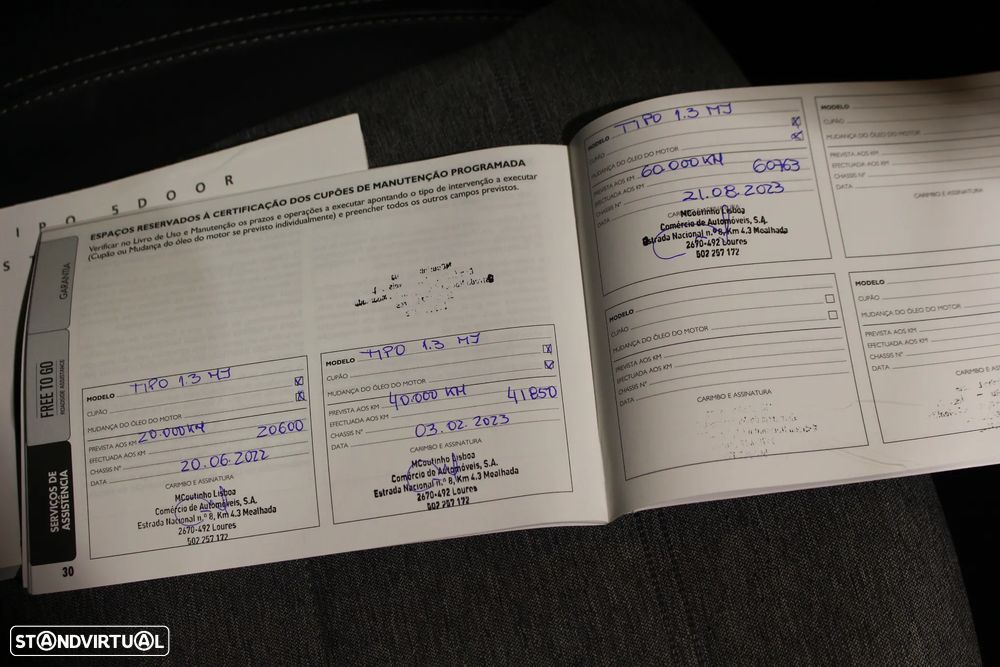 I P O 5 D O O R
S
GARANTIA
FREE TO GO
ROADSIDE ASSISTANCE
SERVIÇOS DE
ASSISTÊNCIA
30
ESPAÇOS RESERVADOS À CERTIFICAÇÃO DOS CUPÕES DE MANUTENÇÃO PROGRAMADA
Verificar no Livro de Uso e Manutenção os prazos e operações a executar apontando o tipo de intervenção a executar
(Cupão ou Mudança do óleo do motor se previsto individualmente) e preencher todos os outros campos previstos.
MODELO TIPO 1.3 MJ
CUPÃO
MUDANÇA DO ÓLEO DO MOTOR
PREVISTA AOS KM 20.000KM
EFECTUADA AOS KM 20600
CHASSIS Nº
DATA 20.06.2022
CARIMBO E ASSINATURA
MCoutinho Lisboa
Comércio de Automóveis, S.A.
Estrada Nacional n.º 8, Km 4.3 Mealhada
2670-492 Loures
502 257 172
MODELO TIPO 1.3 MJ
CUPÃO
MUDANÇA DO ÓLEO DO MOTOR
PREVISTA AOS KM 40.000 KM
EFECTUADA AOS KM 41850
CHASSIS Nº
DATA 03.02.2023
CARIMBO E ASSINATURA
MCoutinho Lisboa
Comércio de Automóveis, S.A.
Estrada Nacional n.º 8, Km 4.3 Mealhada
2670-492 Loures
502 257 172
MODELO TIPO 1.3 MJ
CUPÃO
MUDANÇA DO ÓLEO DO MOTOR
PREVISTA AOS KM 60.000 KM
EFECTUADA AOS KM 60963
CHASSIS Nº
DATA 21.08.2023
CARIMBO E ASSINATURA
MCoutinho Lisboa
Comércio de Automóveis, S.A.
Estrada Nacional n.º 8, Km 4.3 Mealhada
2670-492 Loures
502 257 172
MODELO
CUPÃO
MUDANÇA DO ÓLEO DO MOTOR
PREVISTA AOS KM
EFECTUADA AOS KM
CHASSIS Nº
DATA
CARIMBO E ASSINATURA
MODELO
CUPÃO
MUDANÇA DO ÓLEO DO MOTOR
PREVISTA AOS KM
EFECTUADA AOS KM
CHASSIS Nº
DATA
CARIMBO E ASSINATURA
MODELO
CUPÃO
MUDANÇA DO ÓLEO DO MOTOR
PREVISTA AOS KM
EFECTUADA AOS KM
CHASSIS Nº
DATA
CARIMBO E ASS
STANDVIRTUAL